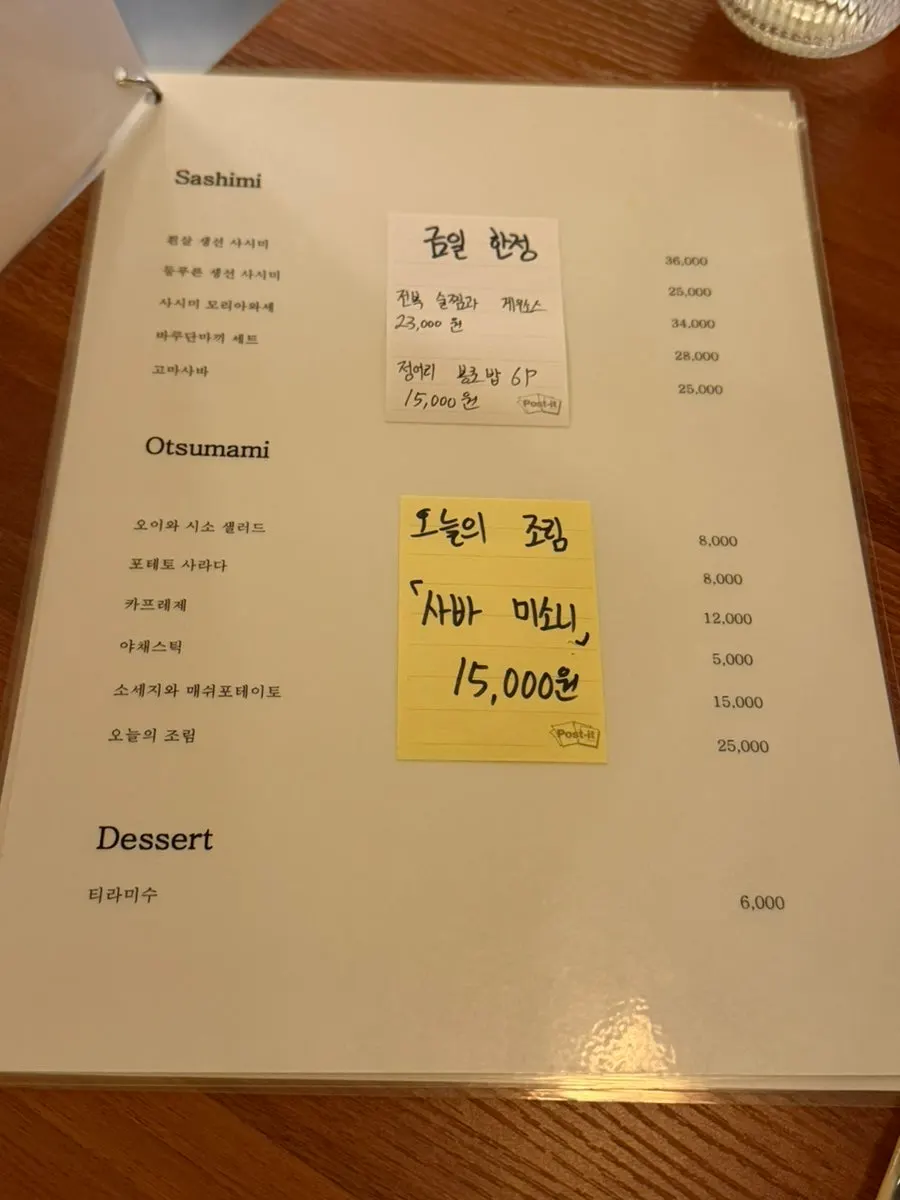 Sashimi
흰살 생선 사시미 36,000
등푸른 생선 사시미 25,000
사시미 모리아와세 34,000
마루단마끼 세트 28,000
고마사바 25,000
금일 한정
전복 술찜과 게우소스
23,000 원
정어리 봉초밥 6P
15,000 원
Post-it
Otsumami
오이와 시소 샐러드 8,000
포테토 사라다 8,000
카프레제 12,000
야채스틱 5,000
소세지와 매쉬포테이토 15,000
오늘의 조림 25,000
오늘의 조림
「사바 미소니」
15,000원
Post-it
Dessert
티라미수 6,000